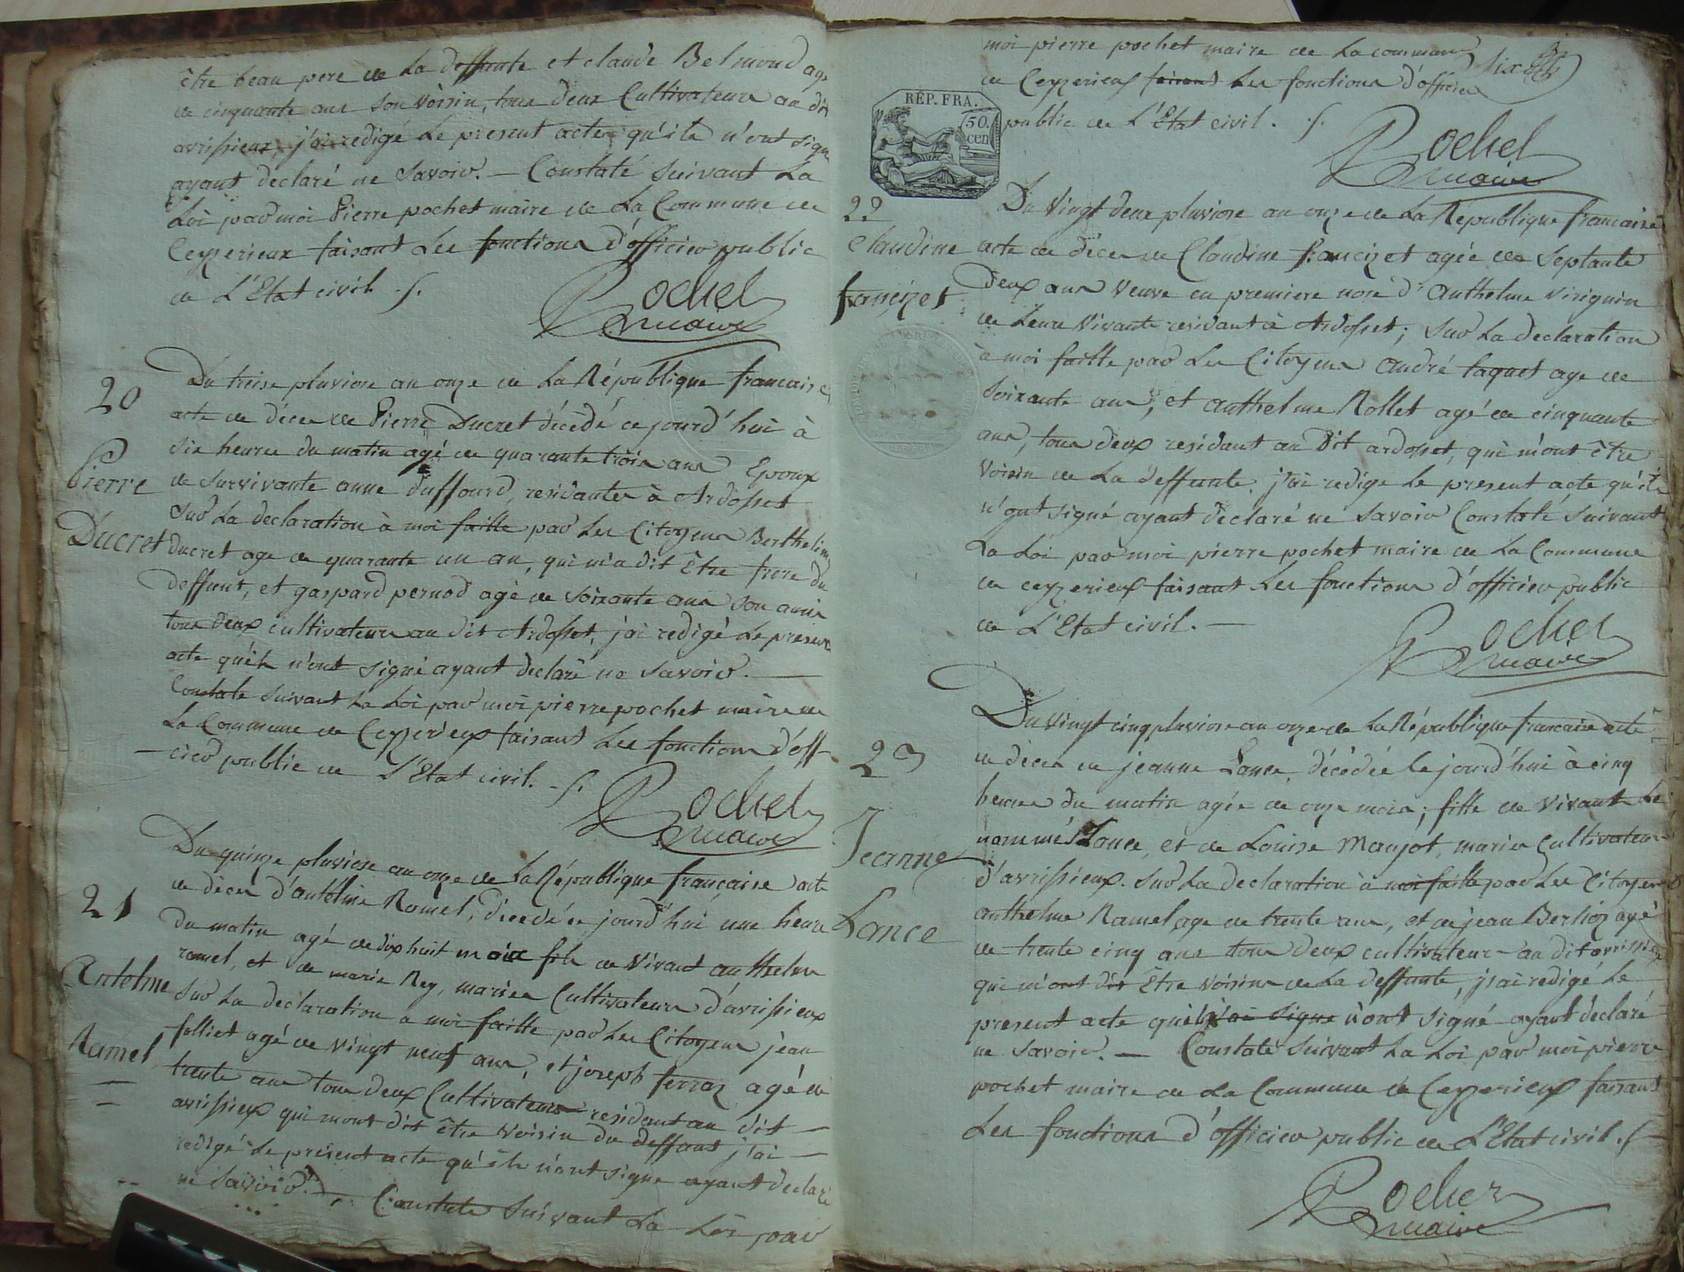 être beau pere de La deffunte et claude Belmond agé
de cinquante ans son voisin, tous deux Cultivateurs au dit
avrissieux, j'ai redigé Le present acte qu'ils n'ont signé
ayant déclaré ne Savoir. — Constaté Suivant La
Loi par moi Pierre pochet maire de La Commune de
Ceyzerieux faisant Les fonctions d'officier public
de L'Etat civil .
Pochet
maire
20
Pierre
Ducret
Du treise pluviose an onze de La République francaise
acte de décès de Pierre Ducret décédé ce jourd'hui à
six heures du matin agé de quarante trois ans Epoux
de Survivante anne duffourd, residante à Ardosset
Sur La declaration à moi faitte par Les Citoyens Berthelmi
ducret age de quarante un an, qui m'a dit être frere du
deffunt, et gaspard pernod agé de soixante ans son ami
tous deux cultivateurs au dit Ardosset, j'ai redigé Le present
acte qu'ils n'ont signé ayant declaré ne Savoir. —
Constaté suivant La Loi par moi pierre pochet maire de
La Commune de Ceyzerieux faisant Les fonctions d'offi-
cier public de L'Etat civil.
Pochet
maire
21
Antelme
Ramel
Du quinze pluviose an onze de La République francaise acte
de décès d'antelme Ramel, décédé ce jourd'hui une heure
du matin agé de dix huit mois fils de vivant anthelme
ramel, et de marie Rey, mariés Cultivateurs d'avrissieux
Sur La declaration a moi faitte par Les Citoyens jean
folliet agé de vingt neuf ans, et joseph ferraz agé de
trente ans tous deux Cultivateurs residant au dit —
avrissieux qui mont dit être voisin du deffunt j'ai —
redigé Le présent acte qu'ils n'ont signe ayant declaré
ne Savoir. — Constaté Suivant La Loi par
moi pierre pochet maire de La commune
de Ceyzerieux faisant Les fonctions d'officier
public de L'Etat civil.
Six
REP. FRA.
50.
cen
Pochet
maire
22
Claudine
francizet
Du vingt deux pluviose an onze de La République francaise
acte de décès de Claudine francizet agée de Septante
deux ans veuve en premiere nose d'anthelme viviguin
de Leur vivante residant à Ardosset; Sur La declaration
à moi faitte par Les Citoyens andré taquet age de
soixante ans, et anthelme Rollet agé de cinquante
ans, tous deux residant au Dit ardosset, qui m'ont être
voisin de La deffunte. j'ai redige Le present acte qu'ils
n'ont signé ayant déclaré ne Savoir Constaté Suivant
La Loi par moi pierre pochet maire de La Commune
de ceyzerieux faisant Les fonctions d'officier public
de L'Etat civil. —
Pochet
maire
23
Jeanne
Lance
Du vingt cinq pluviose an onze de La République francaise acte
de décès de jeanne Lance, décédée Ce jourd'hui à cinq
heures du matin agée de onze mois; fille de vivant Le
nommé Lance, et de Louise Maujot, mariés Cultivateurs
d'avrissieux. Sur La declaration à moi faitte par Les Citoyens
anthelme Ramel age de trente ans, et de jean Berlioz agé
de trente cinq ans tous deux cultivateurs au dit avrissieux
qui m'ont dit être voisins de La deffunte, j'ai redigé Le
present acte qu'ils j'ai signe n'ont signé ayant déclaré
ne Savoir. — Constaté Suivant La Loi par moi pierre
pochet maire de La Commune de Ceyzerieux faisant
Les fonctions d'officier public de L'Etat civil.
Pochet
maire